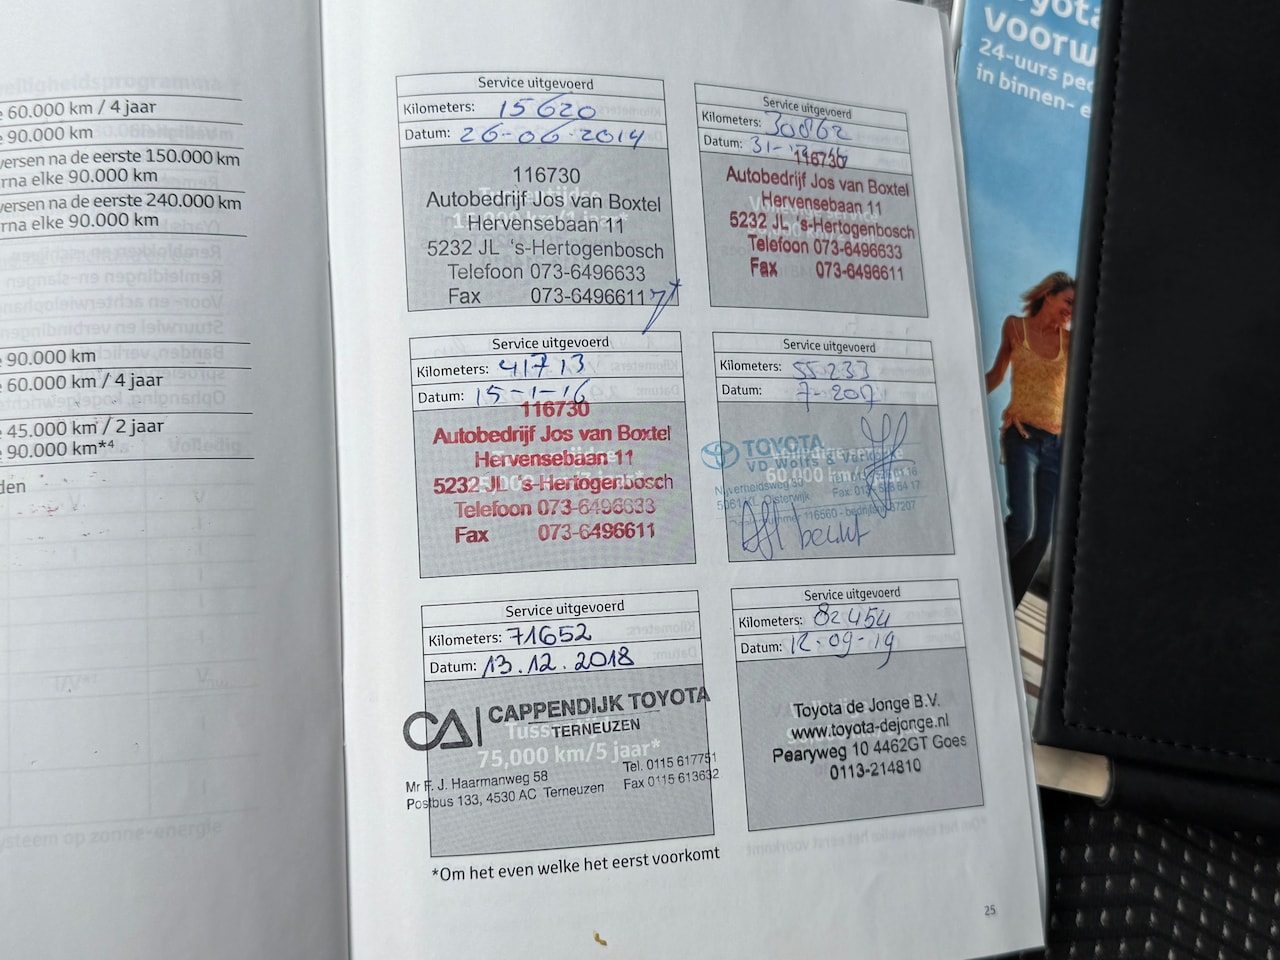 60.000 km / 4 jaar
90.000 km
versen na de eerste 150.000 km
rna elke 90.000 km
versen na de eerste 240.000 km
rna elke 90.000 km
90.000 km
60.000 km / 4 jaar
45.000 km / 2 jaar
90.000 km*⁴
den
Service uitgevoerd
Kilometers: 15620
Datum: 26-06-2014
116730
Autobedrijf Jos van Boxtel
Hervensebaan 11
5232 JL 's-Hertogenbosch
Telefoon 073-6496633
Fax 073-6496611
Service uitgevoerd
Kilometers: 30862
Datum: 31-
116730
Autobedrijf Jos van Boxtel
Hervensebaan 11
5232 JL 's-Hertogenbosch
Telefoon 073-6496633
Fax 073-6496611
Service uitgevoerd
Kilometers: 41713
Datum: 15-1-16
116730
Autobedrijf Jos van Boxtel
Hervensebaan 11
5232 JL 's-Hertogenbosch
Telefoon 073-6496633
Fax 073-6496611
Service uitgevoerd
Kilometers: 55233
Datum: 7-2017
TOYOTA
VD Wolfs &
60.000 km
Oisterwijk
116560 - bedrijfsnr.
Service uitgevoerd
Kilometers: 71652
Datum: 13.12.2018
CA CAPPENDIJK TOYOTA
TERNEUZEN
75,000 km/5 jaar*
Mr F. J. Haarmanweg 58 Tel. 0115 617751
Postbus 133, 4530 AC Terneuzen Fax 0115 613632
Service uitgevoerd
Kilometers: 82454
Datum: 12-09-19
Toyota de Jonge B.V.
www.toyota-dejonge.nl
Pearyweg 10 4462GT Goes
0113-214810
*Om het even welke het eerst voorkomt
25
voorw
24-uurs
in binnen-